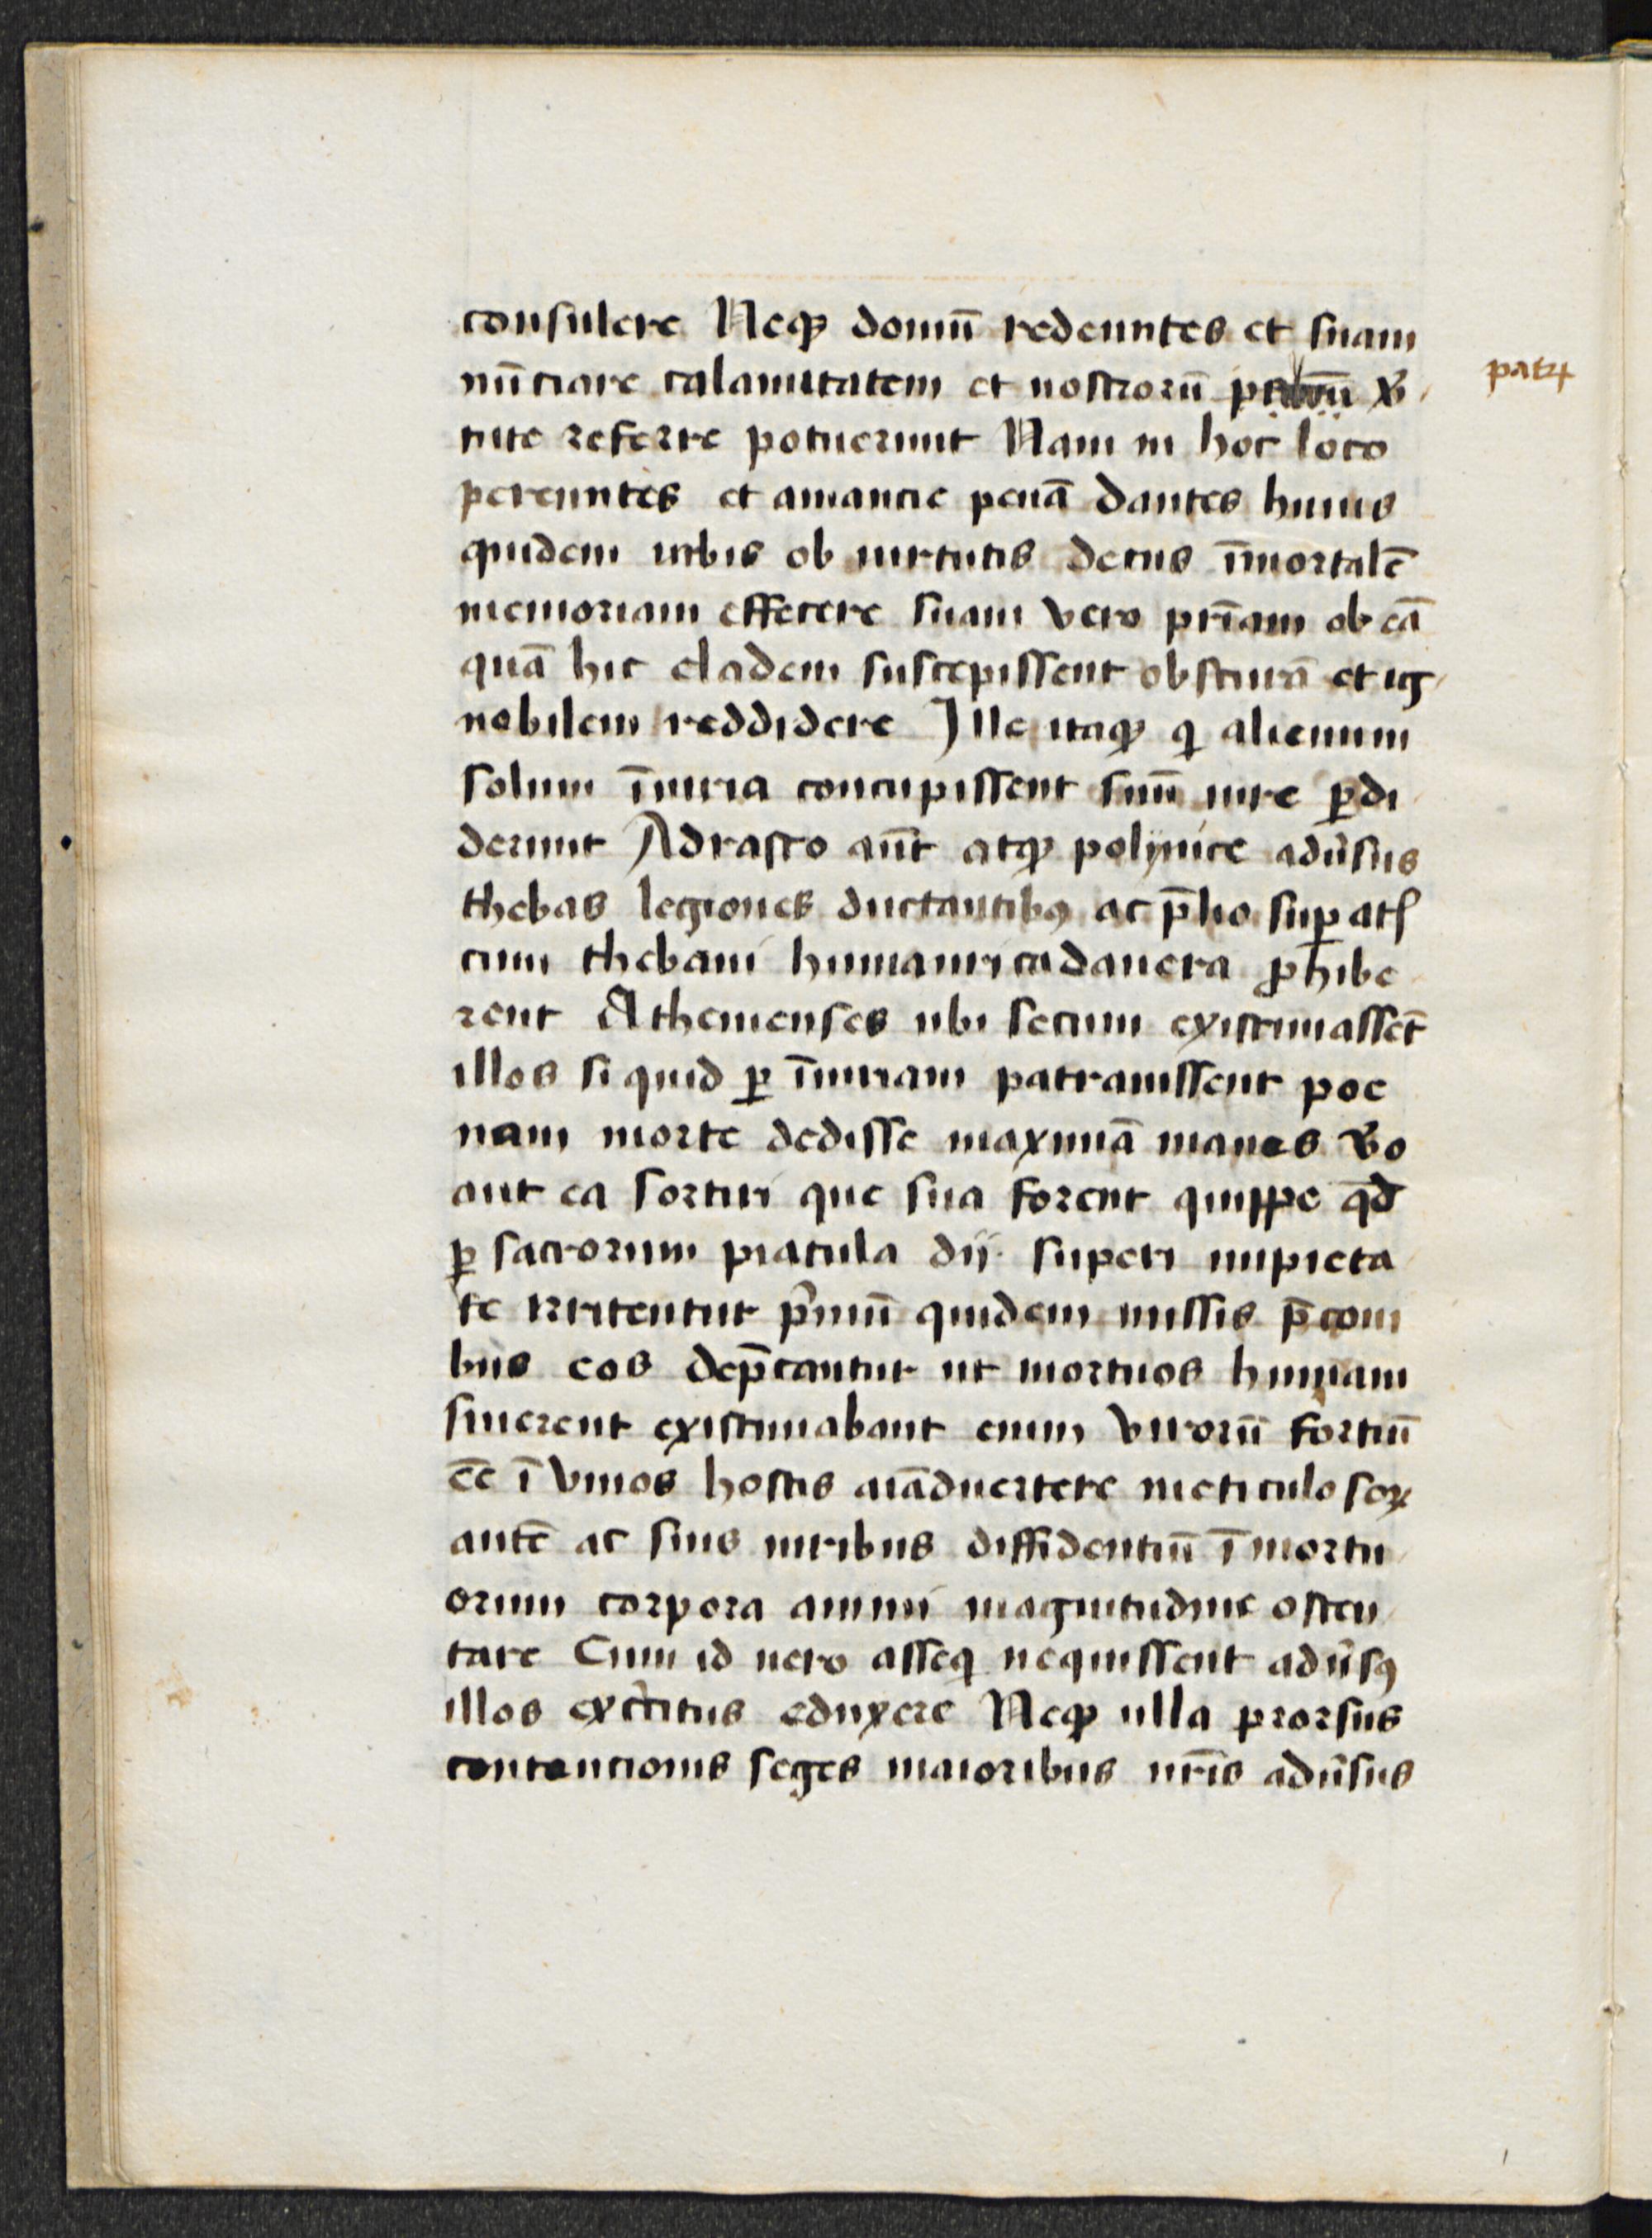 consulere Neqꝫ domū redeuntes et suam
nūciare calamitatem et nostrorū v̄
patrꝝ
tute referre potuerunt Nam in hoc loco
pereuntes et amancie penā dantes huius
quidem urbis ob uirtutis decus īmortalē
memoriam effecere suam vero pr̄iam ob eā
quā hic cladem suscepissent obscurā et ig
nobilem reddidere Ille itaqꝫ q̄ alienum
solum īiuria concupissent suū iure ꝑdi
derunt Adrasto aūt atqꝫ polynice adūsus
thebas legiones ductantibꝰ ac p̄lio suꝑatꝭ
cum thebani humanri cadauera ꝓhibe
rent Athenienses ubi secum existimassēt
illos si quid ꝑ īiuriam patrauissent poe
nam morte dedisse maximā manes v̄o
aut ea sortiri que sua forent quippe qd̄
ꝑ sacrorum piacula dij superi impieta
te irritentur p̄mū quidem missis p̄coni
bus eos dep̄cantur ut mortuos humam
sinerent existimabant enim virorū fortiū
ēe ī viuos hostis aīaduertere meticulosoꝝ
autē ac suis uiribus diffidentiū ī mortu
orum corpora animi magnitudine osten
tare Cum id uero asseq̄ nequissent adūsꝰ
illos exc̄itus eduxere Neqꝫ ulla prorsus
contencionis seges maioribus nr̄is adūsus